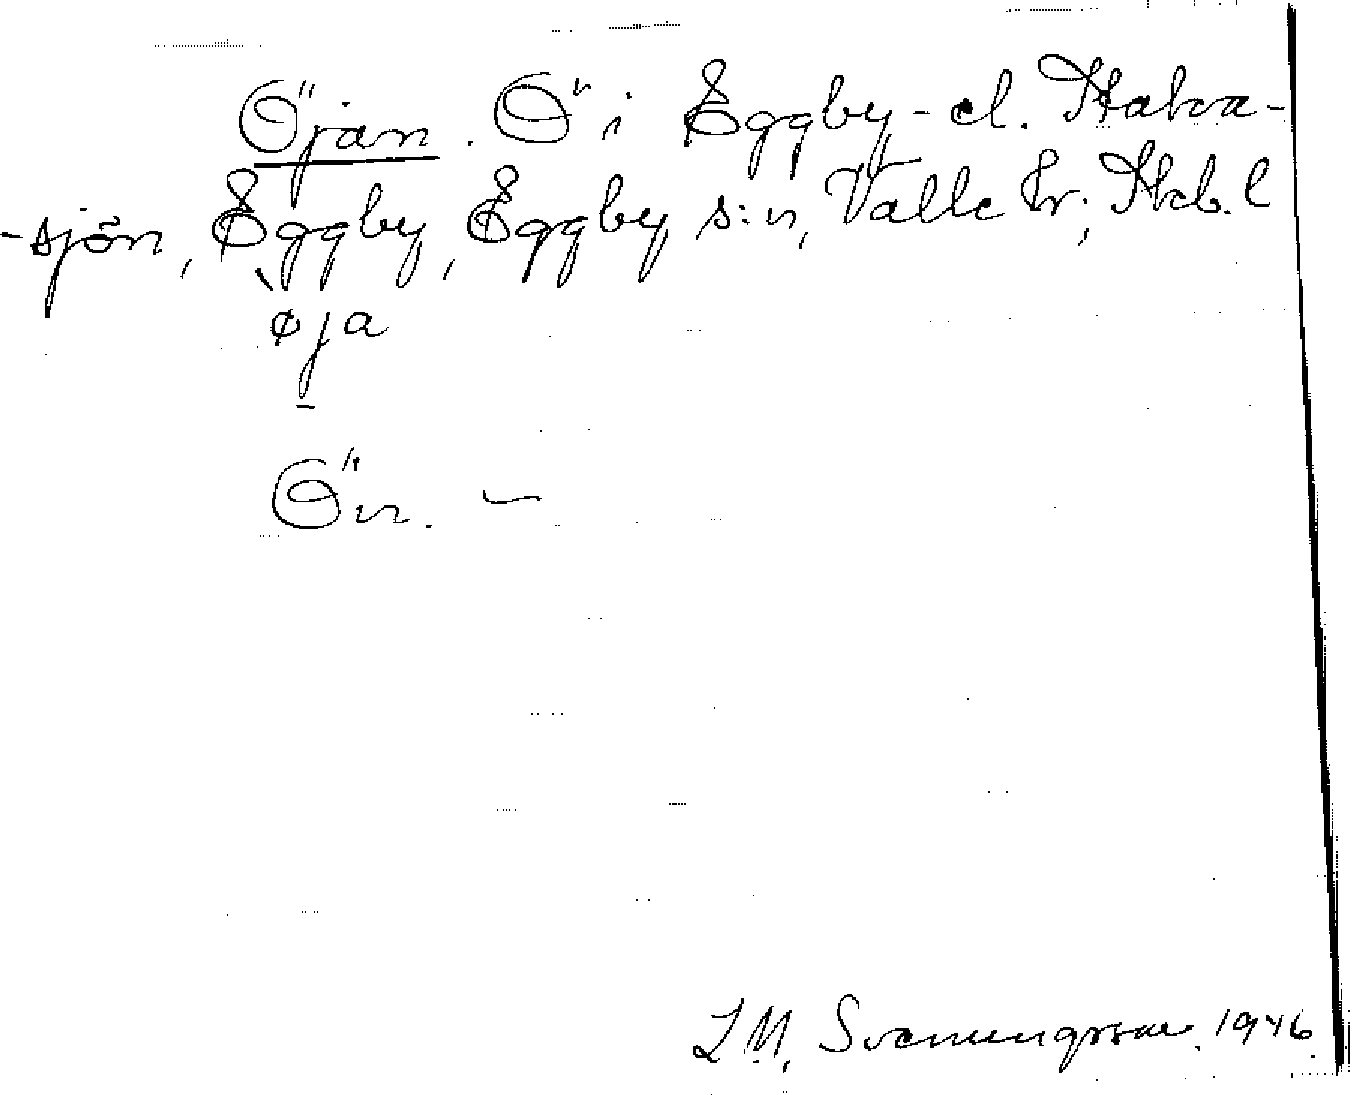 Öjan. Ö i Eggby- el. Stakva-
-sjön, Eggby, Eggby s:n, Valle hr; Skb. l
`øja
Ön. –
L M, Svenungsson. 1946